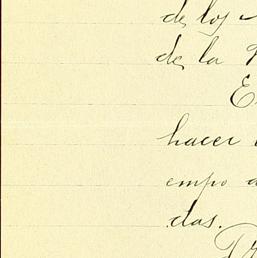 de los
de la
hacer
empo
das.